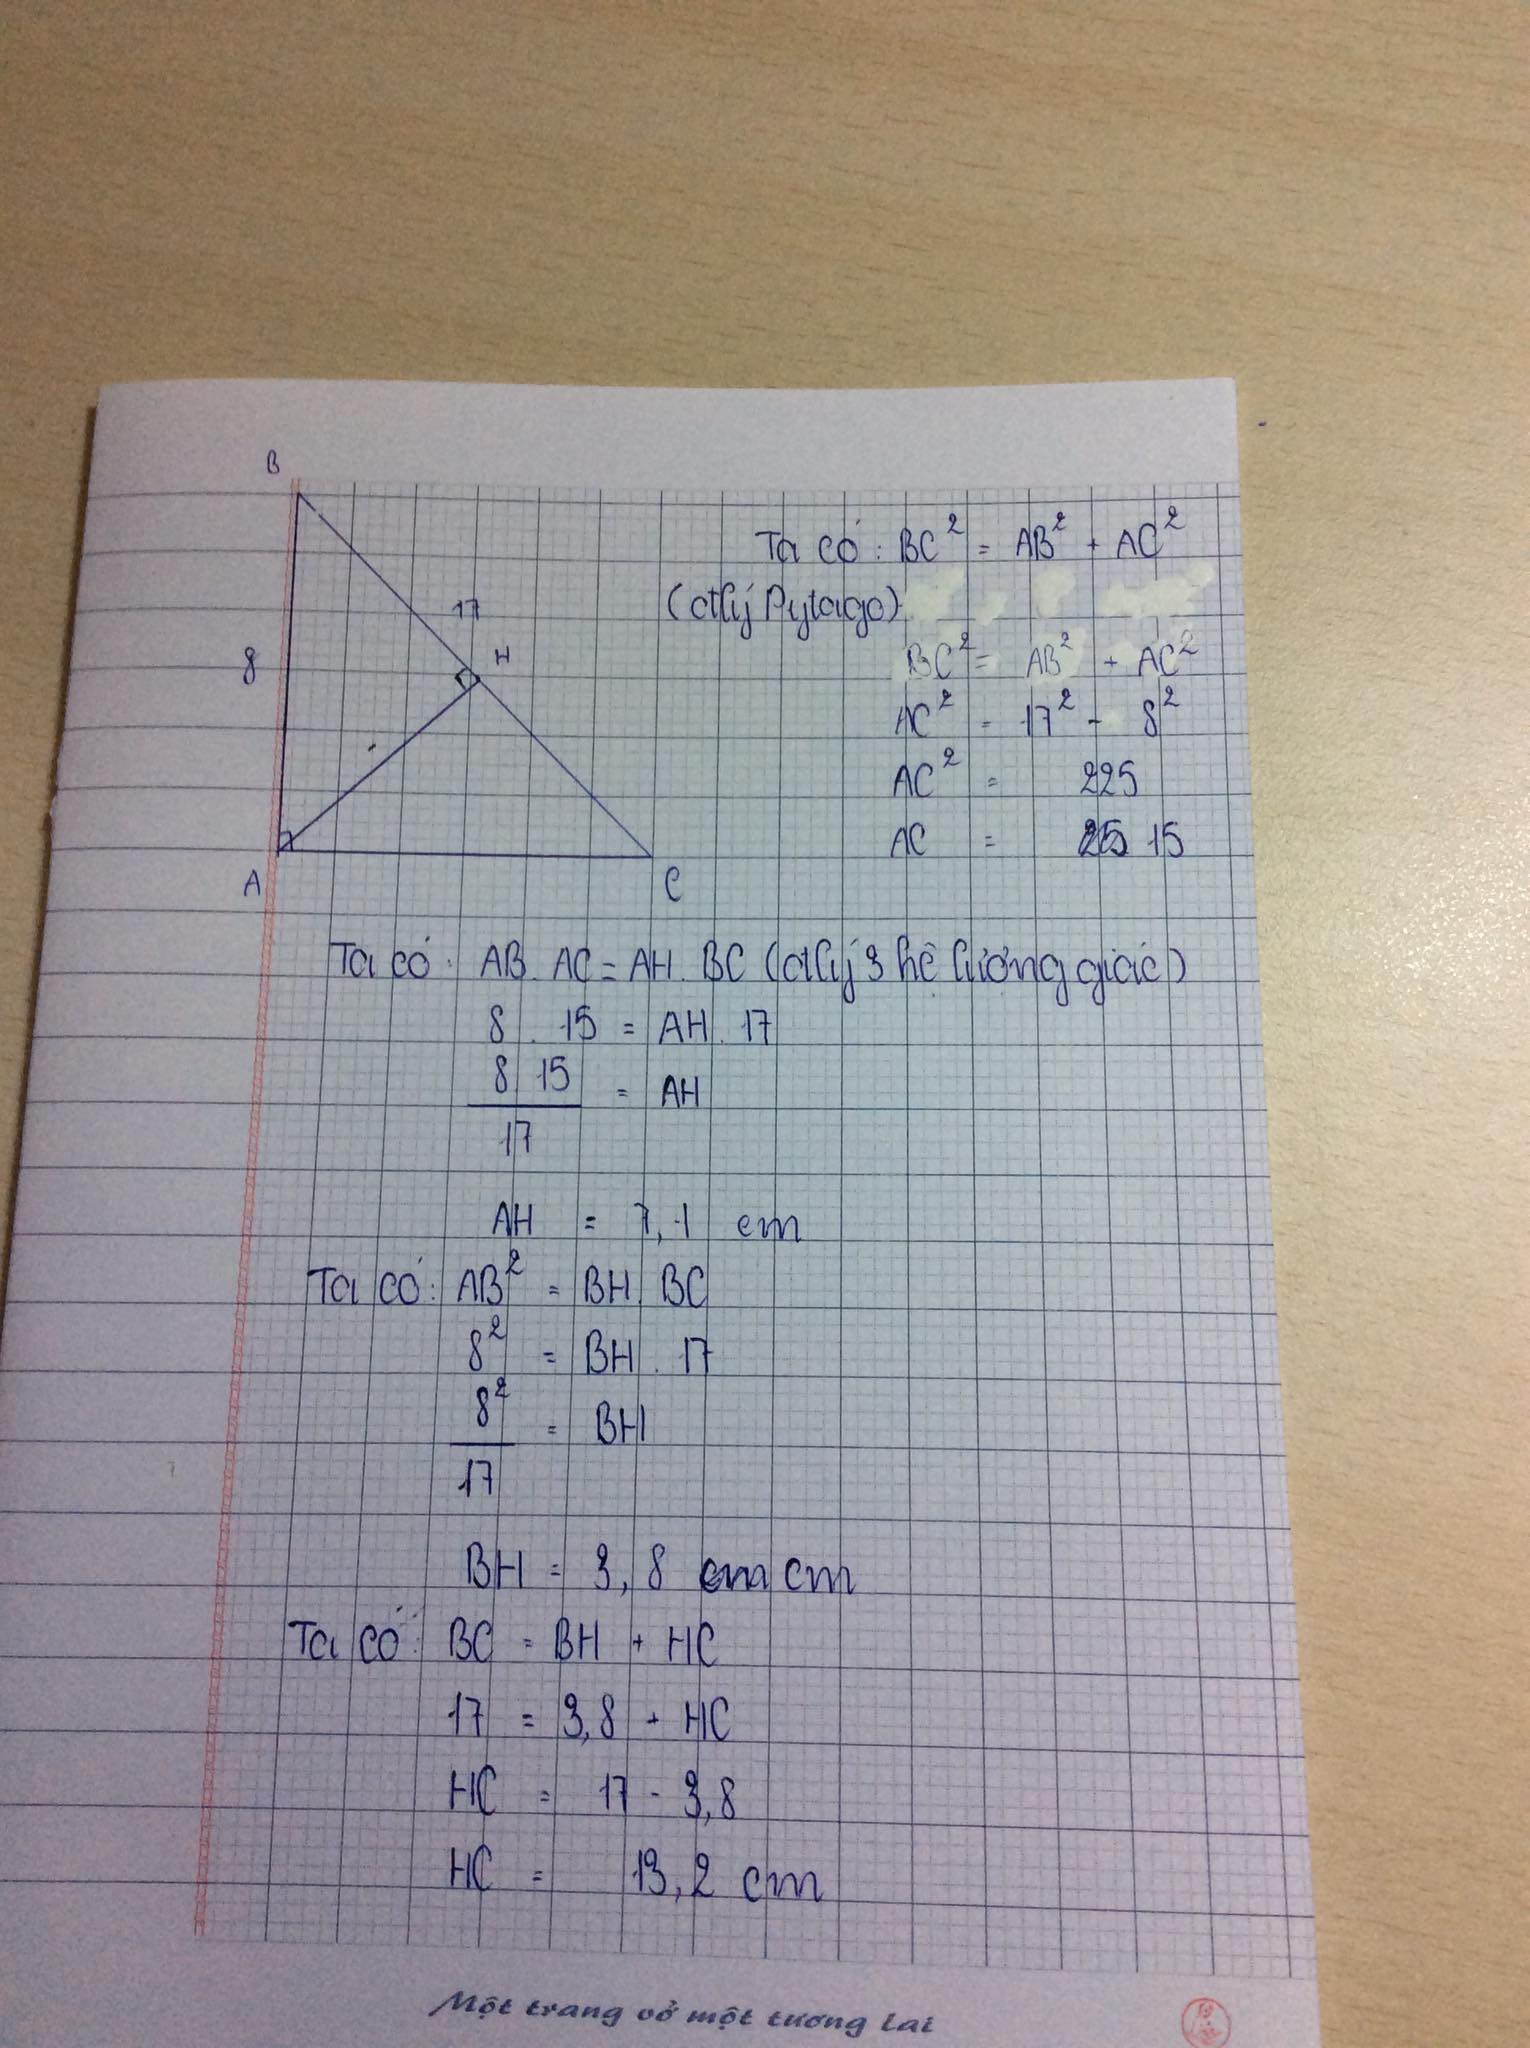 B
17
8
H
A
C
Ta có: BC² = AB² + AC²
(đlý Pytago)
BC² = AB² + AC²
AC² = 17² - 8²
AC² = 225
AC = 15
Ta có: AB. AC = AH. BC (đlý 3 hệ lương giác)
8 . 15 = AH. 17
8 15
= AH
17
AH = 7,1 cm
Ta có: AB² = BH. BC
8² = BH . 17
8²
= BH
17
BH = 3,8 cm cm
Ta có: BC = BH + HC
17 = 3,8 + HC
HC = 17 - 3,8
HC = 13,2 cm
Một trang vở một tương lai